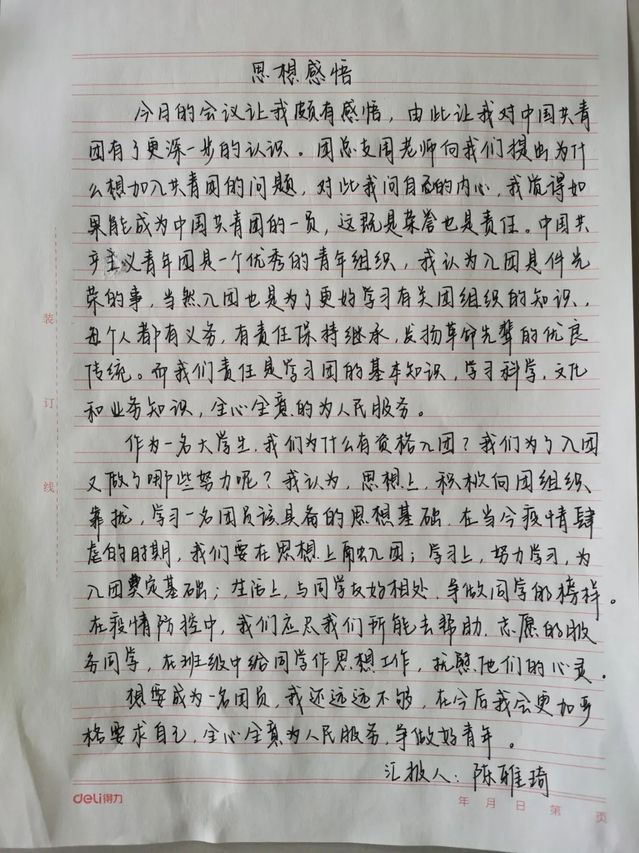 思想感悟
今日的会议让我颇有感悟，由此让我对中国共青
团有了更深一步的认识。团总支周老师向我们提出为什
么想加入共青团的问题，对此我问自己的内心，我觉得如
果能成为中国共青团的一员，这既是荣誉也是责任。中国共
产主义青年团是一个优秀的青年组织，我认为入团是件光
荣的事，当然入团也是为了更好学习有关团组织的知识，
每个人都有义务，有责任保持继承，发扬革命先辈的优良
传统。而我们责任是学习团的基本知识，学习科学，文化
和业务知识，全心全意的为人民服务。
作为一名大学生，我们为什么有资格入团？我们为了入团
又做了哪些努力呢？我认为，思想上，积极向团组织
靠拢，学习一名团员该具备的思想基础，在当今疫情肆
虐的时期，我们要在思想上入团；学习上，努力学习，为
入团奠定基础；生活上，与同学友好相处，争做同学的榜样。
在疫情防控中，我们应尽我们所能去帮助，志愿的服
务同学，在班级中给同学作思想工作，抚慰他们的心灵。
想要成为一名团员，我还远远不够，在今后我会更加严
格要求自己，全心全意为人民服务，争做好青年。
汇报人：陈雅琦
装
订
线
deli得力
年 月 日 第 页